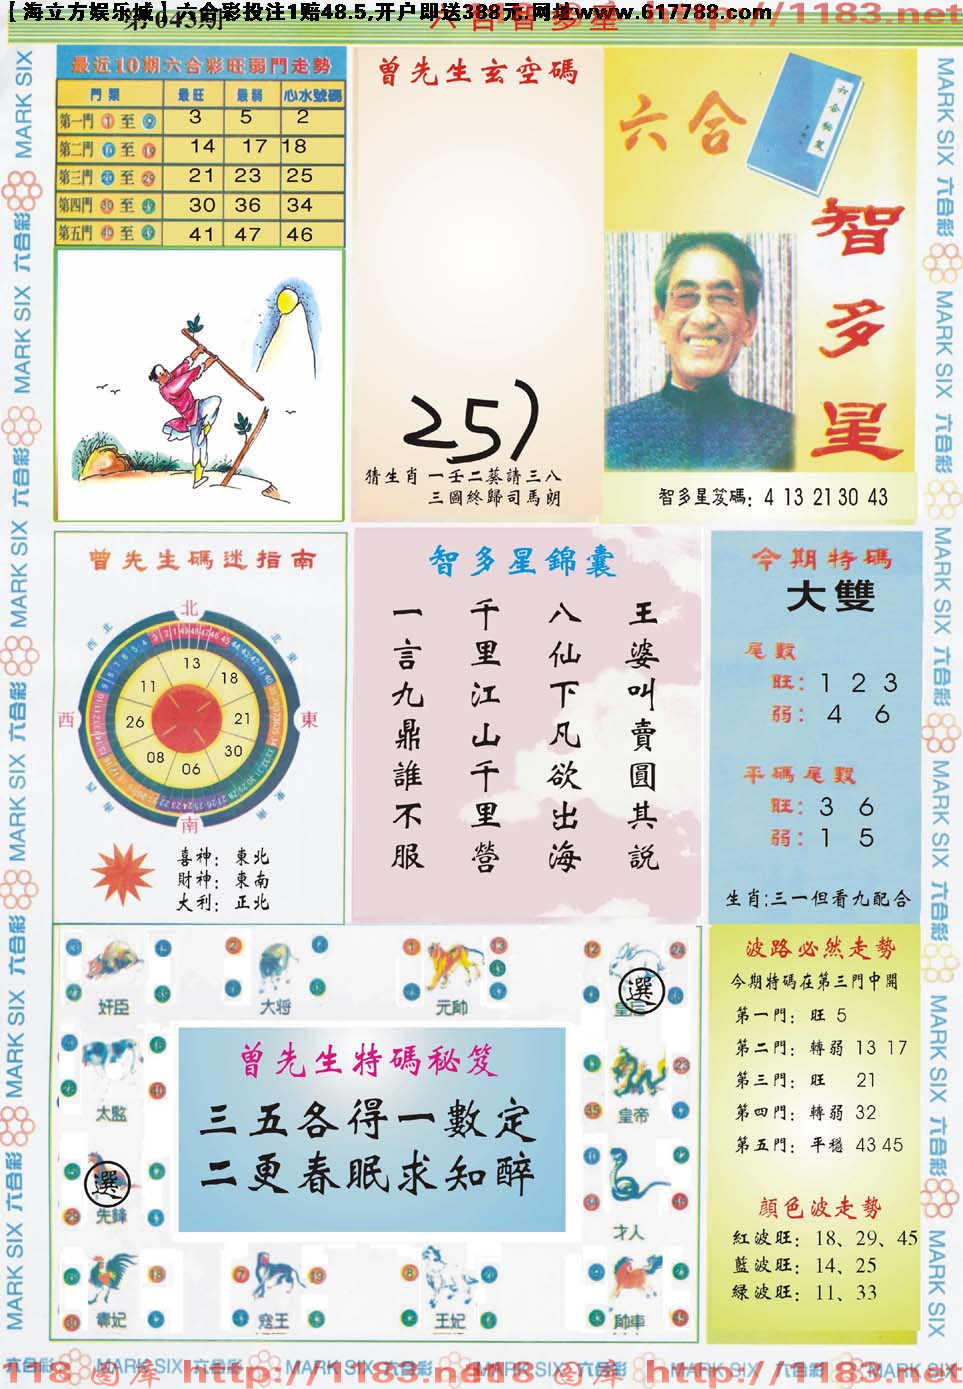 【海立方娱乐城】六合彩投注1赔48.5,开户即送388元.网址www.617788.com
第043期
六合智多星
http://1183.net
最近10期六合彩旺弱門走勢
門類 最旺 最弱 心水號碼
第一門 1 至 9 3 5 2
第二門 10 至 19 14 17 18
第三門 20 至 29 21 23 25
第四門 30 至 39 30 36 34
第五門 40 至 49 41 47 46
曾先生玄空碼
257
猜生肖 一壬二葵請三八
三國終歸司馬朗
六合
智多星
智多星笈碼: 4 13 21 30 43
曾先生碼迷指南
北
西北
東北
西
東
南
13
18
21
30
06
08
26
11
喜神: 東北
財神: 東南
大利: 正北
智多星錦囊
王婆叫賣圓其說
八仙下凡欲出海
千里江山千里營
一言九鼎誰不服
今期特碼
大雙
尾數
旺: 1 2 3
弱: 4 6
平碼尾數
旺: 3 6
弱: 1 5
生肖:三一但看九配合
奸臣
大将
元帥
選
皇后
太監
皇帝
選
先鋒
才人
寇王
王妃
帥車
曾先生特碼秘笈
三五各得一數定
二更春眠求知醉
波路必然走勢
今期特碼在第三門中開
第一門: 旺 5
第二門: 轉弱 13 17
第三門: 旺 21
第四門: 轉弱 32
第五門: 平穩 43 45
顔色波走勢
紅波旺: 18、29、45
藍波旺: 14、25
綠波旺: 11、33
MARK SIX 六合彩 MARK SIX 六合彩 MARK SIX 六合彩 MARK SIX 六合彩 MARK SIX 六合彩 MARK SIX
MARK SIX 六合彩 MARK SIX 六合彩 MARK SIX 六合彩 MARK SIX 六合彩 MARK SIX 六合彩 MARK SIX
六合彩 MARK SIX 六合彩 MARK SIX 六合彩 MARK SIX 六合彩 MARK SIX 六合彩 MARK SIX
118 图库 http://1183.net
118 图库 http://1183.net